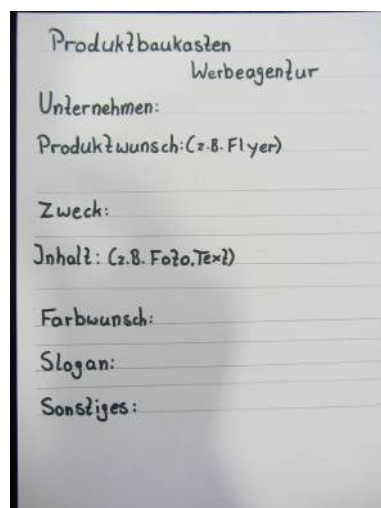 Produktbaukasten
Werbeagentur
Unternehmen:
Produktwunsch:(z.B. Flyer)
Zweck:
Inhalt: (z.B. Foto, Text)
Farbwunsch:
Slogan:
Sonstiges: